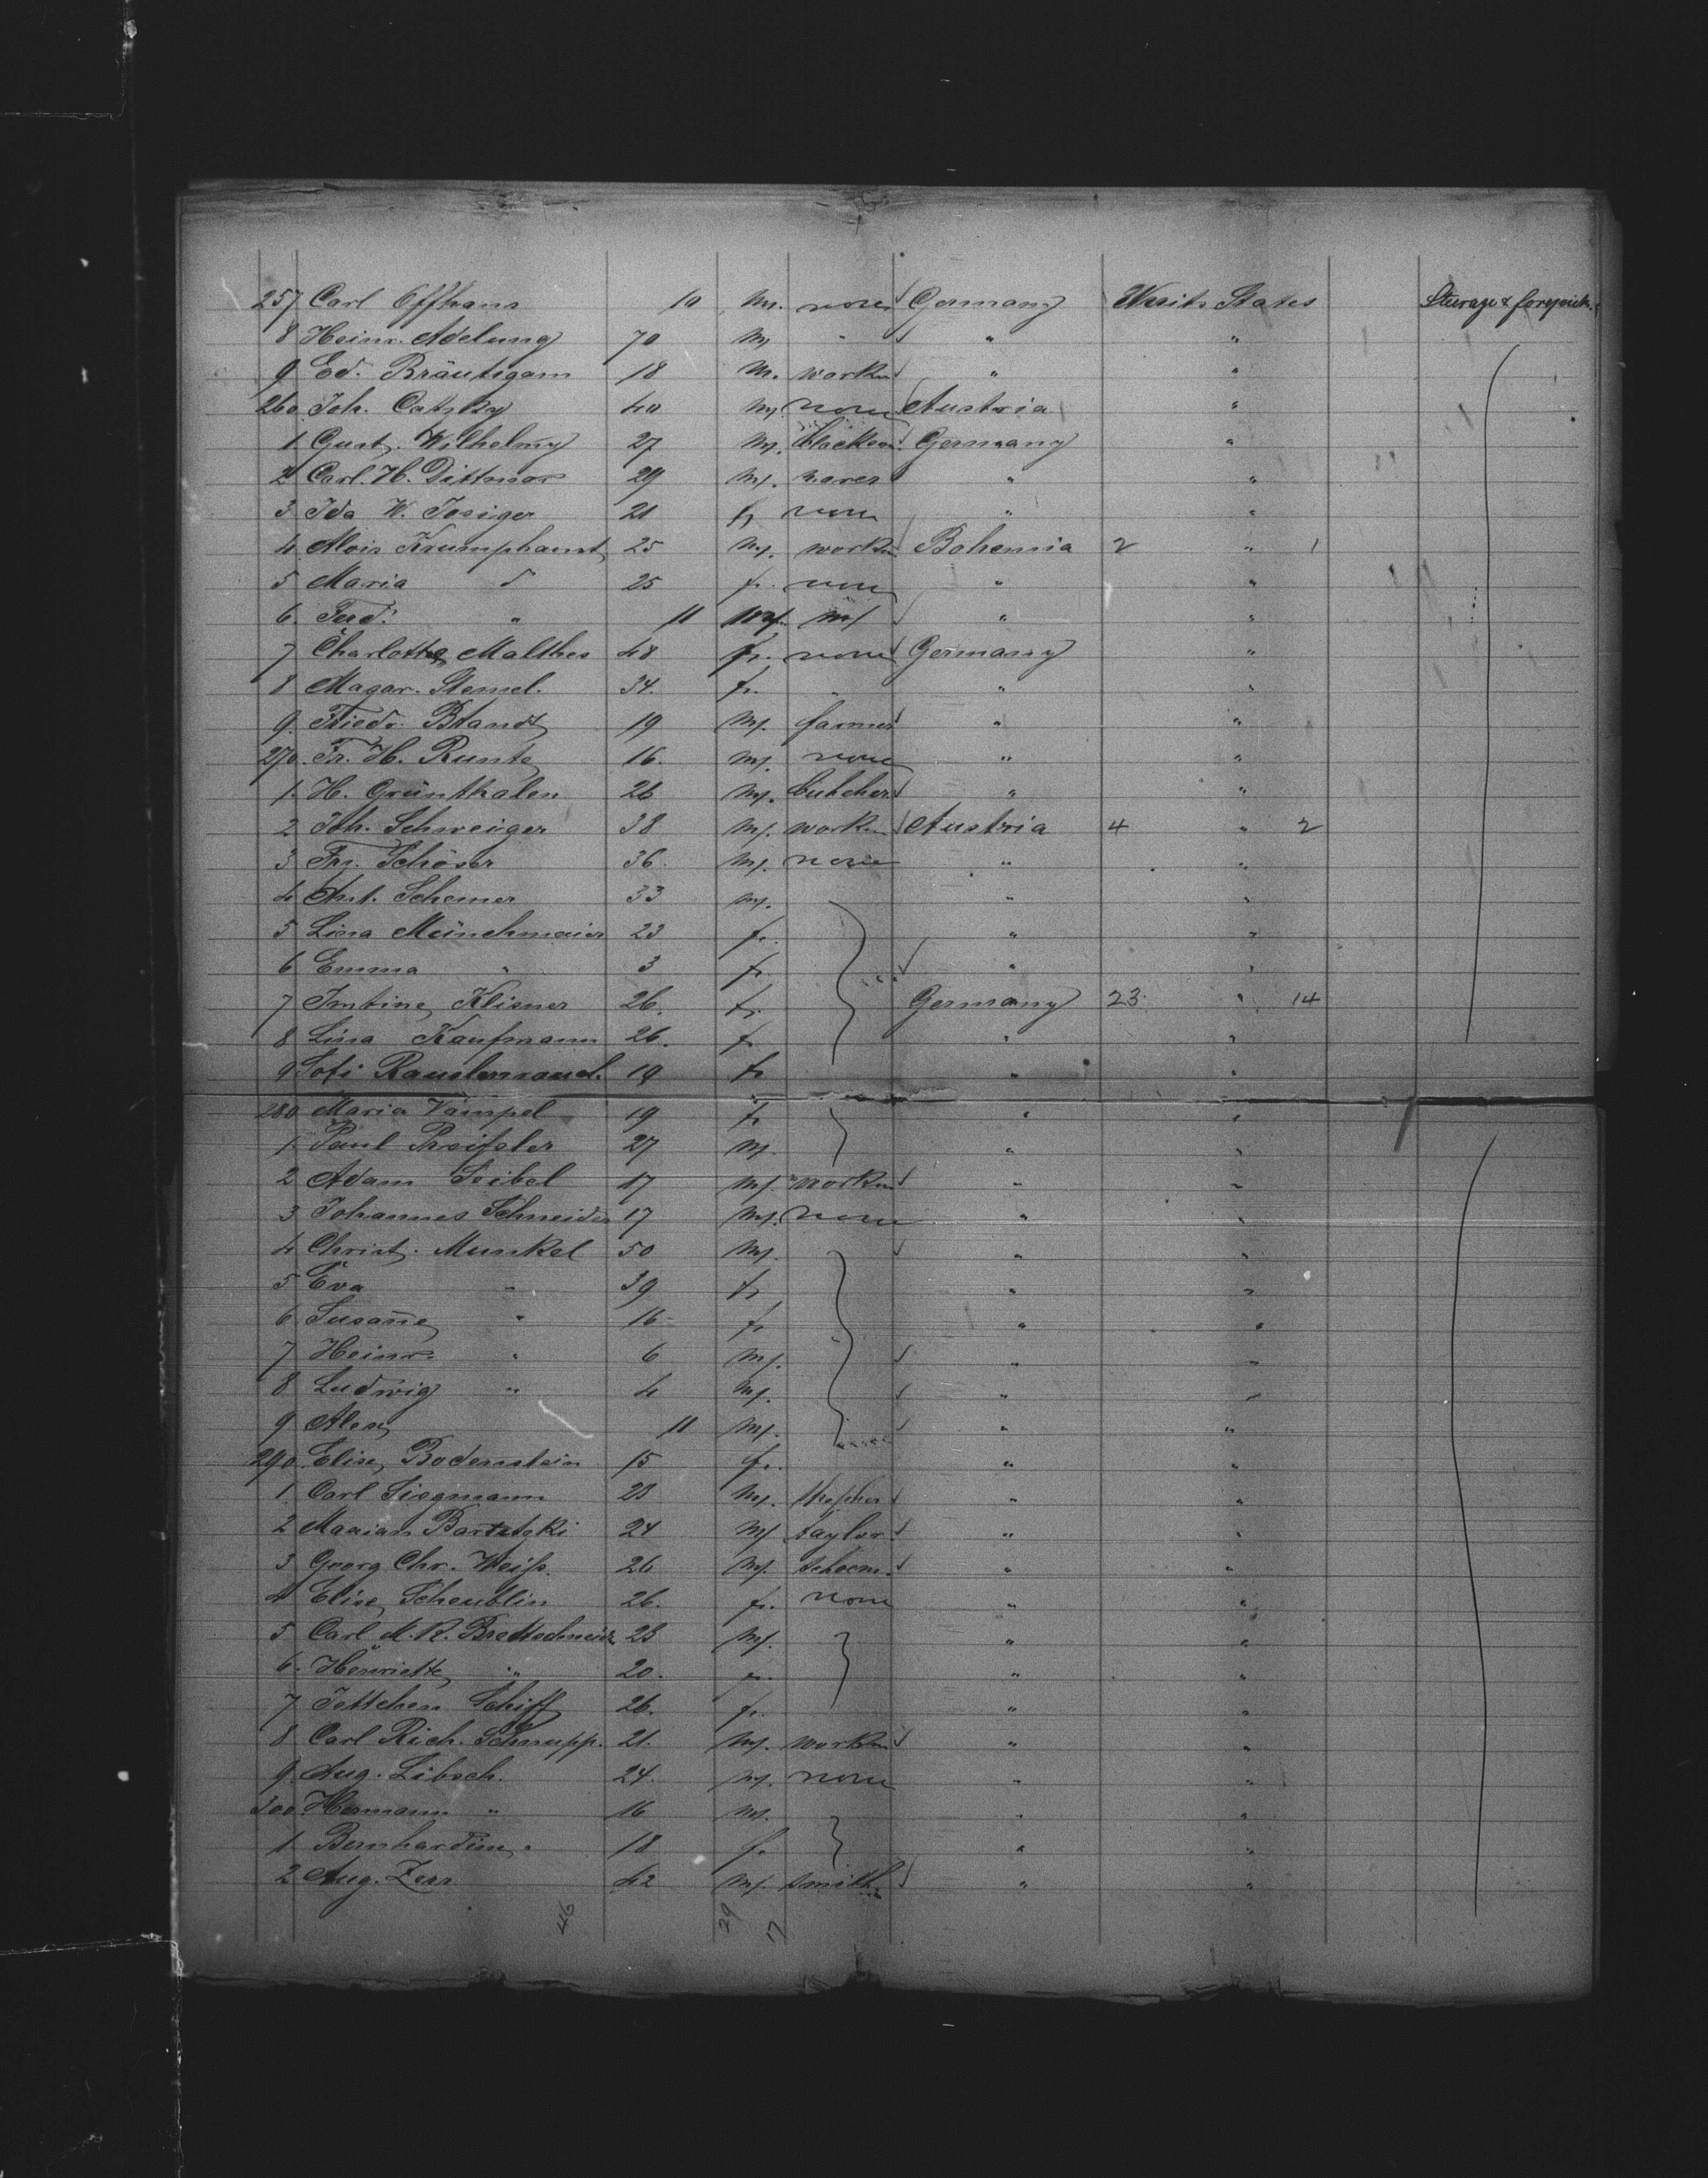 257 Carl Offhans 10 m. none Germany Unit. States Sterage & forepeick.
8 Heinr. Adelung 70 m. " " "
9 Ed. Bräutigam 18 m. workm " "
260 Joh. 40 m. none Austria "
1 Gust. Wilhelmy 27 m. Germany "
2 Carl. H. Dittmar 29 m. " "
3 Ida W. 21 f. none " "
4 Alois Krumphanst 25 m. workm Bohemia 2 " 1
5 Maria d 25 f. none " "
6 Ferd. " 11 m. " "
7 Charlotte Malthes 48 f. none Germany "
8 Magar. Stemel. 34. f. " " "
9. Friedr. Brandt 19 m. farmer " "
270. Fr. H. Runte 16. m. none " "
1. H. Grünthalen 26 m. butcher " "
2 Joh. Schweiger 38 m. workm Austria 4 " 2
3 Fr. Schöser 36. m. none " "
4 Ant. Schemer 33 m. " "
5 Lina Münchmaier 23 f. " "
6 Emma " 3 f. " "
7 Klisner 26. f. Germany 23 " 14
8 Lina Kaufmann 26. f. " "
9 Sofi 19 f " "
280 Maria Vämpel 19 f. " "
1 Paul 27 m. " "
2 Adam Seibel 17 m. workm " "
3 Johannes Schneider 17 m. none " "
4 Christ. Munkel 50 m. " "
5 Eva " 39 f. " "
6 Susane " 16 f. " "
7 Heinr. " 6 m. " "
8 Ludwig " 4 m. " "
9 Alex 11 m. " "
290 Elise Bodenstein 15 f. " "
1. Carl Siegmann 23 m. " "
2 Marian 24 m. taylor " "
3 Georg Chr. Weiß. 26 m. schoem. " "
4 Elise Scheublin 26. f. none " "
5 Carl M. R. Brettschneider 23 m. " "
6. Henriette " 20. f. " "
7 Jettchen Schiff 26. f. " "
8 Carl Rich. Schnupp. 21. m. workm " "
9. Aug. Libsch. 24. m. none " "
300 Hermann " 16 m. " "
1 Bernhardine " 18 f. " "
2 Aug. Zerr 42 m. smith " "
46 29 17